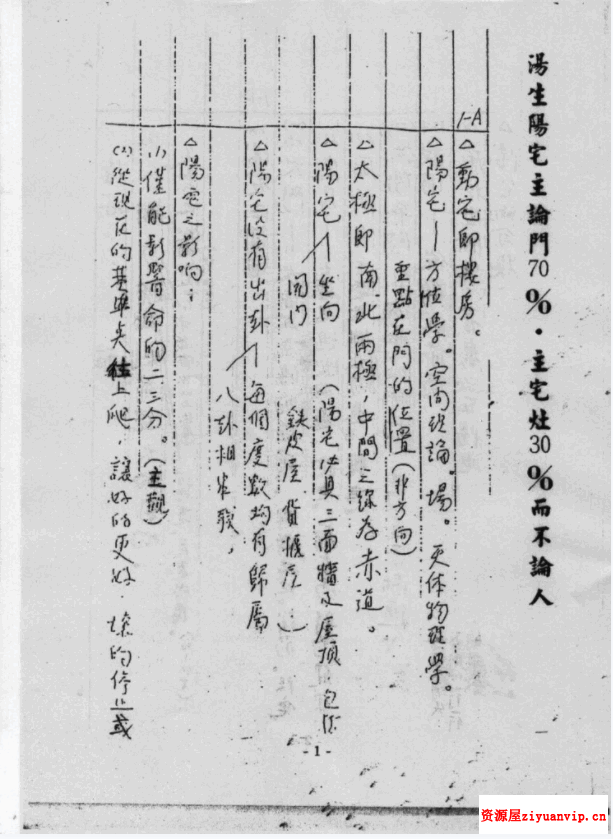 湯生陽宅主論門70%·主宅灶30%而不論人
1-A
△動宅即樓房。
△陽宅—方位學。空间理論。場。天体物理學。
重點在門的位置(非方向)
△太極即南、北兩極,中間之線為赤道。
△陽宅 坐向 (陽宅必具三面牆及屋頂 包括
開门 鉄皮屋 貨櫃屋)
△陽宅没有出卦 每個度數均有歸屬
八卦相生
△陽宅之影响:
(1)僅能影響命的二三分。(主觀)
(2)從現在的基準点往上爬,讓好的更好,壞的停止或
-1-
资源屋ziyuanvip.cn